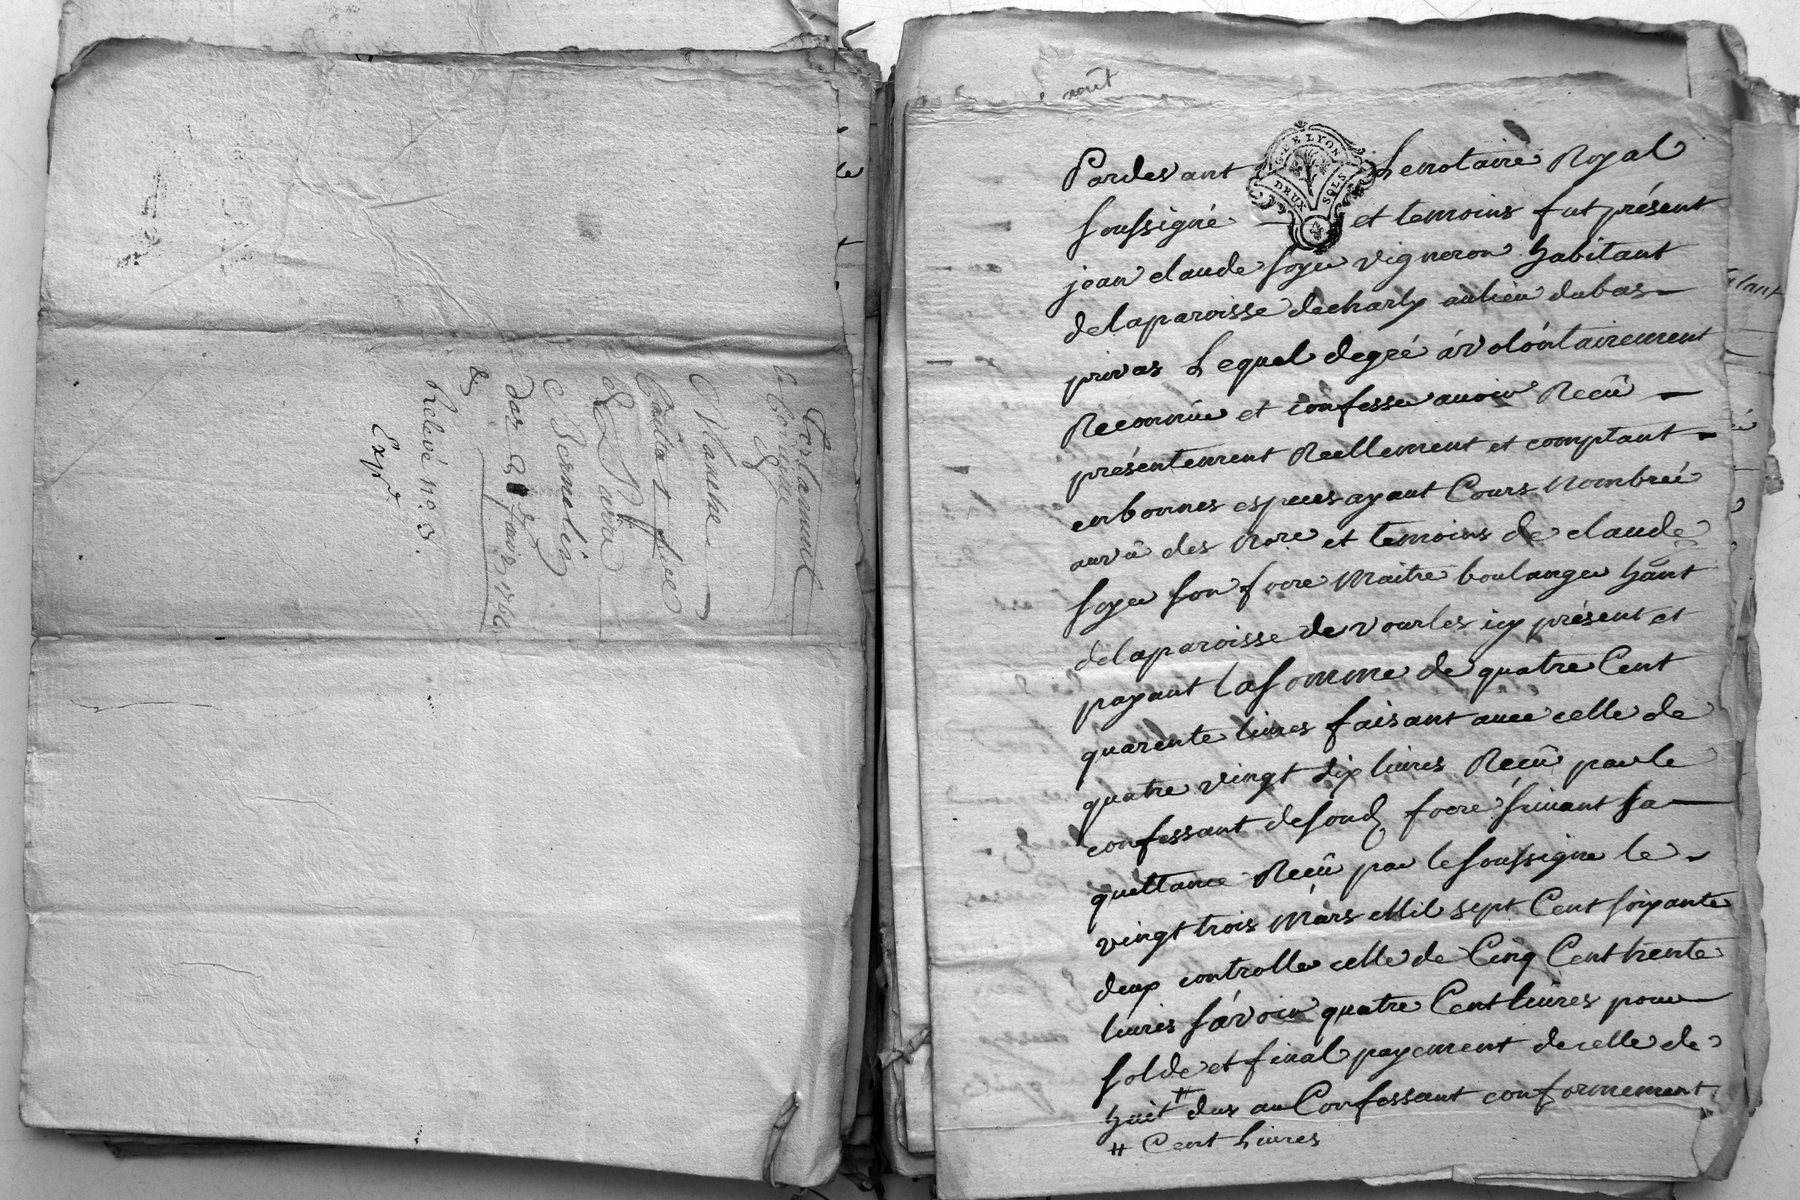 Testament
Nanthe
Exp.
Relevé n.° 3
août
Pardevant Le notaire Royal
G. DE LYON
DEUX SOLS
soussigné et temoins fut présent
jean claude soyer vigneron habitant
de la paroisse de charly au lieu du bas
privas Lequel de gré et volontairement
Reconnue et confesse avoir Recû
présentement Reellement et comptant
en bonnes especes ayant Cours nombreé
au vû des No.re et temoins de claude
soyer son frere Maitre boulanger hant
de la paroisse de vourles icy présent et
payant la somme de quatre Cent
quarente livres faisant avec celle de
quatre vingt dix livres Recû par le
confessant de son frere suivant sa
quittance Recû par le soussigne le
vingt trois Mars Mil sept Cent soixante
deux controlle celle de Cinq Cent trente
livres sávoir quatre Cent livres pour
solde et final payement de celle de
huit # dus au Confessant conformement
# Cent Livres